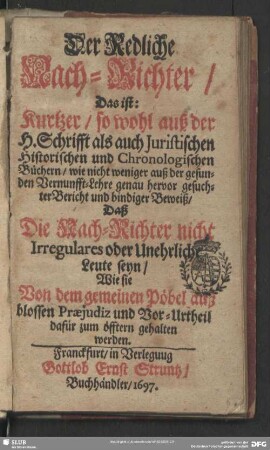 Der Redliche
Nach-Richter /
Das ist:
Kurtzer / so wohl auß der
H. Schrifft als auch Juristischen
Historischen und Chronologischen
Büchern / wie nicht weniger auß der gesun-
den Vernunfft-Lehre genau hervor gesuch-
ter Bericht und bindiger Beweiß /
Daß
Die Nach-Richter nicht
Irregulares oder Unehrliche
Leute seyn /
Wie sie
Von dem gemeinen Pöbel auß
blossen Præjudiz und Vor-Urtheil
dafür zum öfftern gehalten
werden.
Franckfurt / in Verlegung
Gottlob Ernst Struntz /
Buchhändler / 1697.
SLUB
DFG